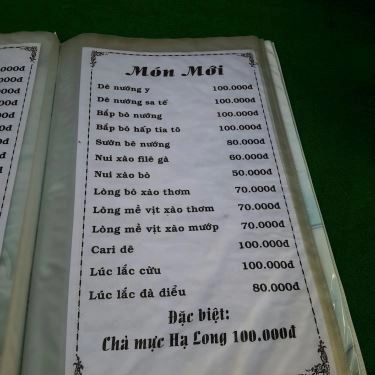 .000đ
000đ
000đ
000đ
000đ
000đ
00đ
00đ
0đ
Món Mới
Dê nướng y 100.000đ
Dê nướng sa tế 100.000đ
Bắp bò nướng 100.000đ
Bắp bò hấp tía tô 100.000đ
Sườn bê nướng 80.000đ
Nui xào filê gà 60.000đ
Nui xào bò 50.000đ
Lòng bò xào thơm 70.000đ
Lòng mề vịt xào thơm 70.000đ
Lòng mề vịt xào mướp 70.000đ
Cari dê 100.000đ
Lúc lắc cừu 100.000đ
Lúc lắc đà điểu 80.000đ
Đặc biệt:
Chả mực Hạ Long 100.000đ